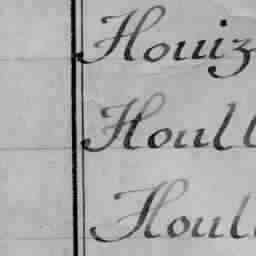 Houiz
Houll
Houl